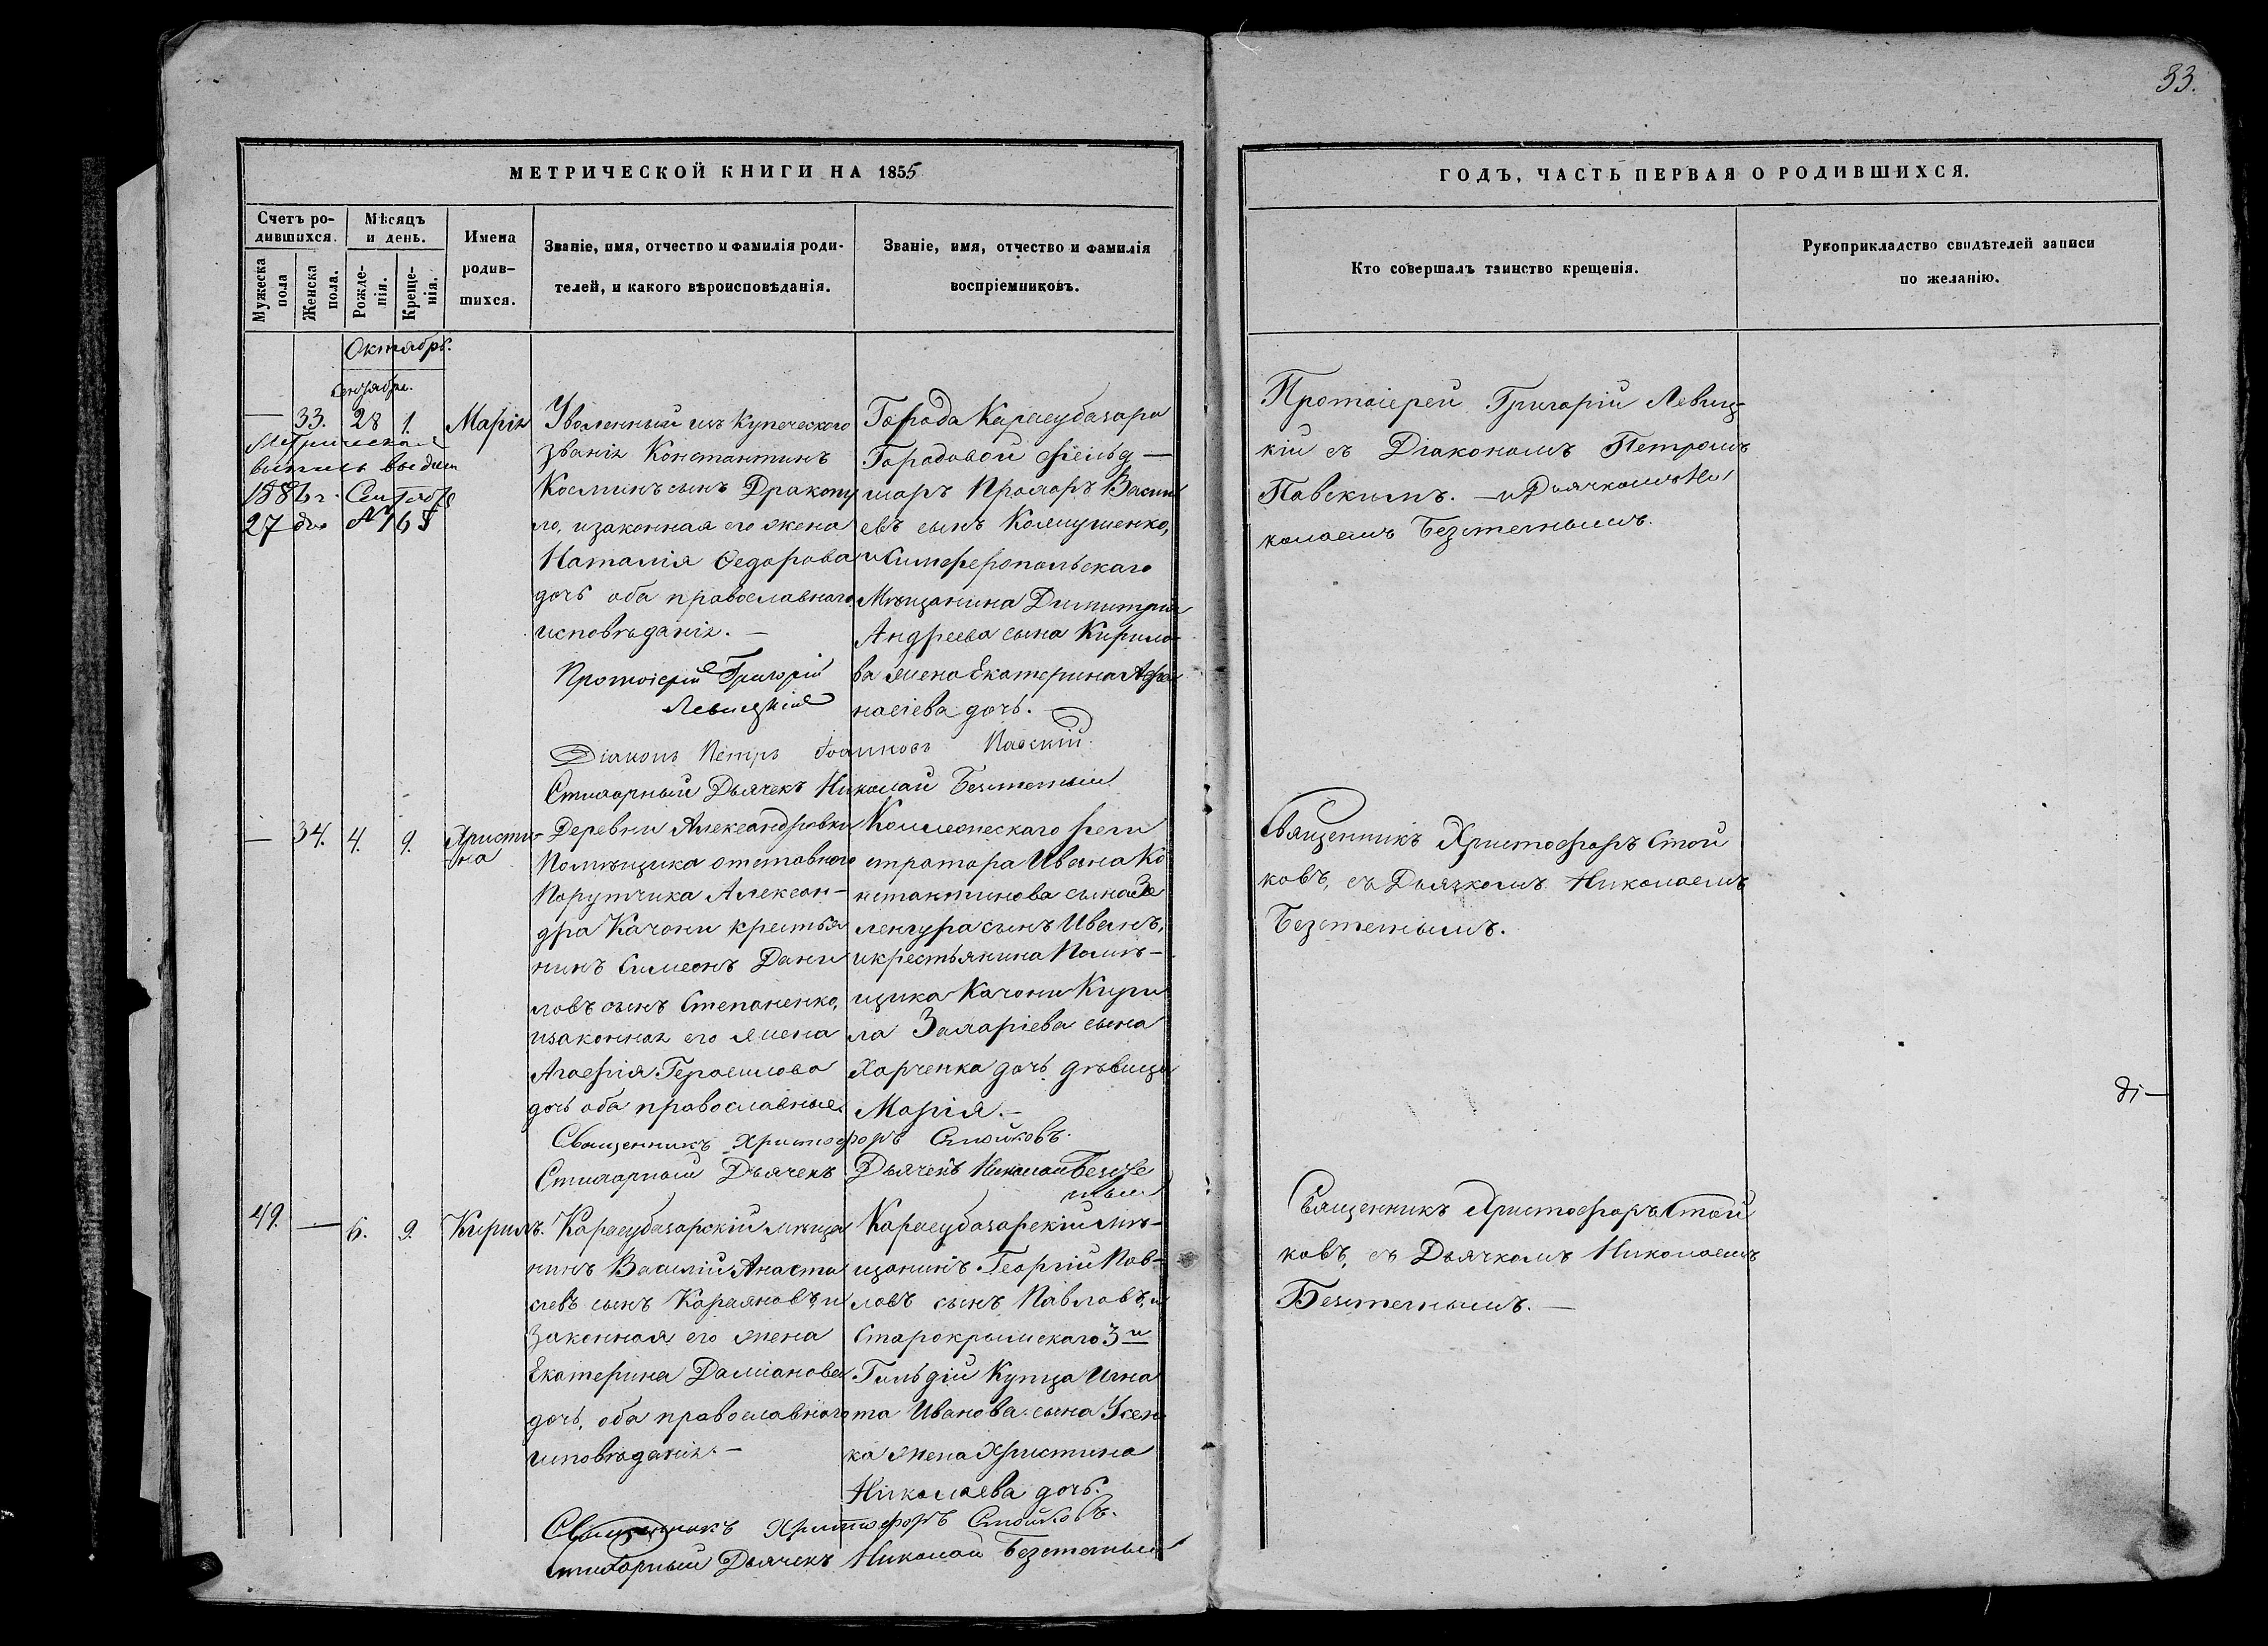 33.
МЕТРИЧЕСКОЙ КНИГИ НА 1855
ГОДЪ, ЧАСТЬ ПЕРВАЯ О РОДИВШИХСЯ.
Счетъ ро-
дившихся.
Мужеска пола
Женска пола.
Мѣсяцъ
и день.
Рожде-
нія.
Креще-
нія.
Имена
родив-
шихся.
Званіе, имя, отчество и фамилія роди-
телей, и какого вѣроисповѣданія.
Званіе, имя, отчество и фамилія
воспріемниковъ.
Кто совершалъ таинство крещенія.
Рукоприкладство свидѣтелей записи
по желанію.
Октябрь.
Сентября.
— 33. 28 1. Марія
Метрическая
выпись выдана
1886 г. Сентября
27 дня № 168
Уволенный изъ купеческаго
званія Константинъ
Косминъ сынъ Дракопу
ло, и законная его жена
Наталія Ѳедорова
дочь оба православнаго
исповѣданія. —
Протоіерей Григорій
Левицкій
Діаконъ Петръ Іоанновъ Павскій.
Стихарный Дьячекъ Николай Безстетный
Города Карасубазара
Городовой фельд —
шеръ Прохоръ Васил
евъ сынъ
и Симферопольскаго
Мѣщанина Димитрія
Андреева сына Кирило-
ва жена Екатерина Афа
насіева дочь.
Протоіерей Григорій Левиц-
кій съ Діакономъ Петромъ
Павскимъ. — и Дьячкомъ Ни
колаемъ Безстетнымъ.
— 34. 4. 9. Христи-
на
Деревни Александровки
Помѣщика отставного
Порутчика Алексан-
дра Качони крестья
нинъ Симеонъ Дани
ловъ сынъ Степаненко,
и законная его жена
Агафія Герасимова
дочь оба православные.
Священникъ Христофоръ Стойковъ.
Стихарный Дьячекъ Дьячекъ Николай Безсте
тный
Коллежскаго реги
стратора Ивана Ко
нстантинова сына Зе
ленгура сынъ Иванъ,
и крестьянина Помѣ-
щика Качони Кири
ла Захаріева сына
Харченка дочь дѣвица
Марія. —
Священникъ Христофоръ Стой
ковъ, съ Дьячкомъ Николаемъ
Безстетнымъ.
49. — 6. 9. Кирилъ.
Карасубазарскій мѣща
нинъ Василій Анаста
сіевъ сынъ и
Законная его жена
Екатерина Даміанова
дочь, оба православнаго
исповѣданія. —
Священникъ Христофоръ Стойковъ.
Стихарный Дьячекъ Николай Безстетный
Карасубазарскій мѣ-
щанинъ Георгій Пав-
ловъ сынъ Павловъ, и
Старокрымскаго 3й
Гильдіи Купца Игна
та Иванова сына Усен
ка жена Христина
Николаева дочь.
Священникъ Христофоръ Стой
ковъ, съ Дьячкомъ Николаемъ
Безстетнымъ. —
ді —